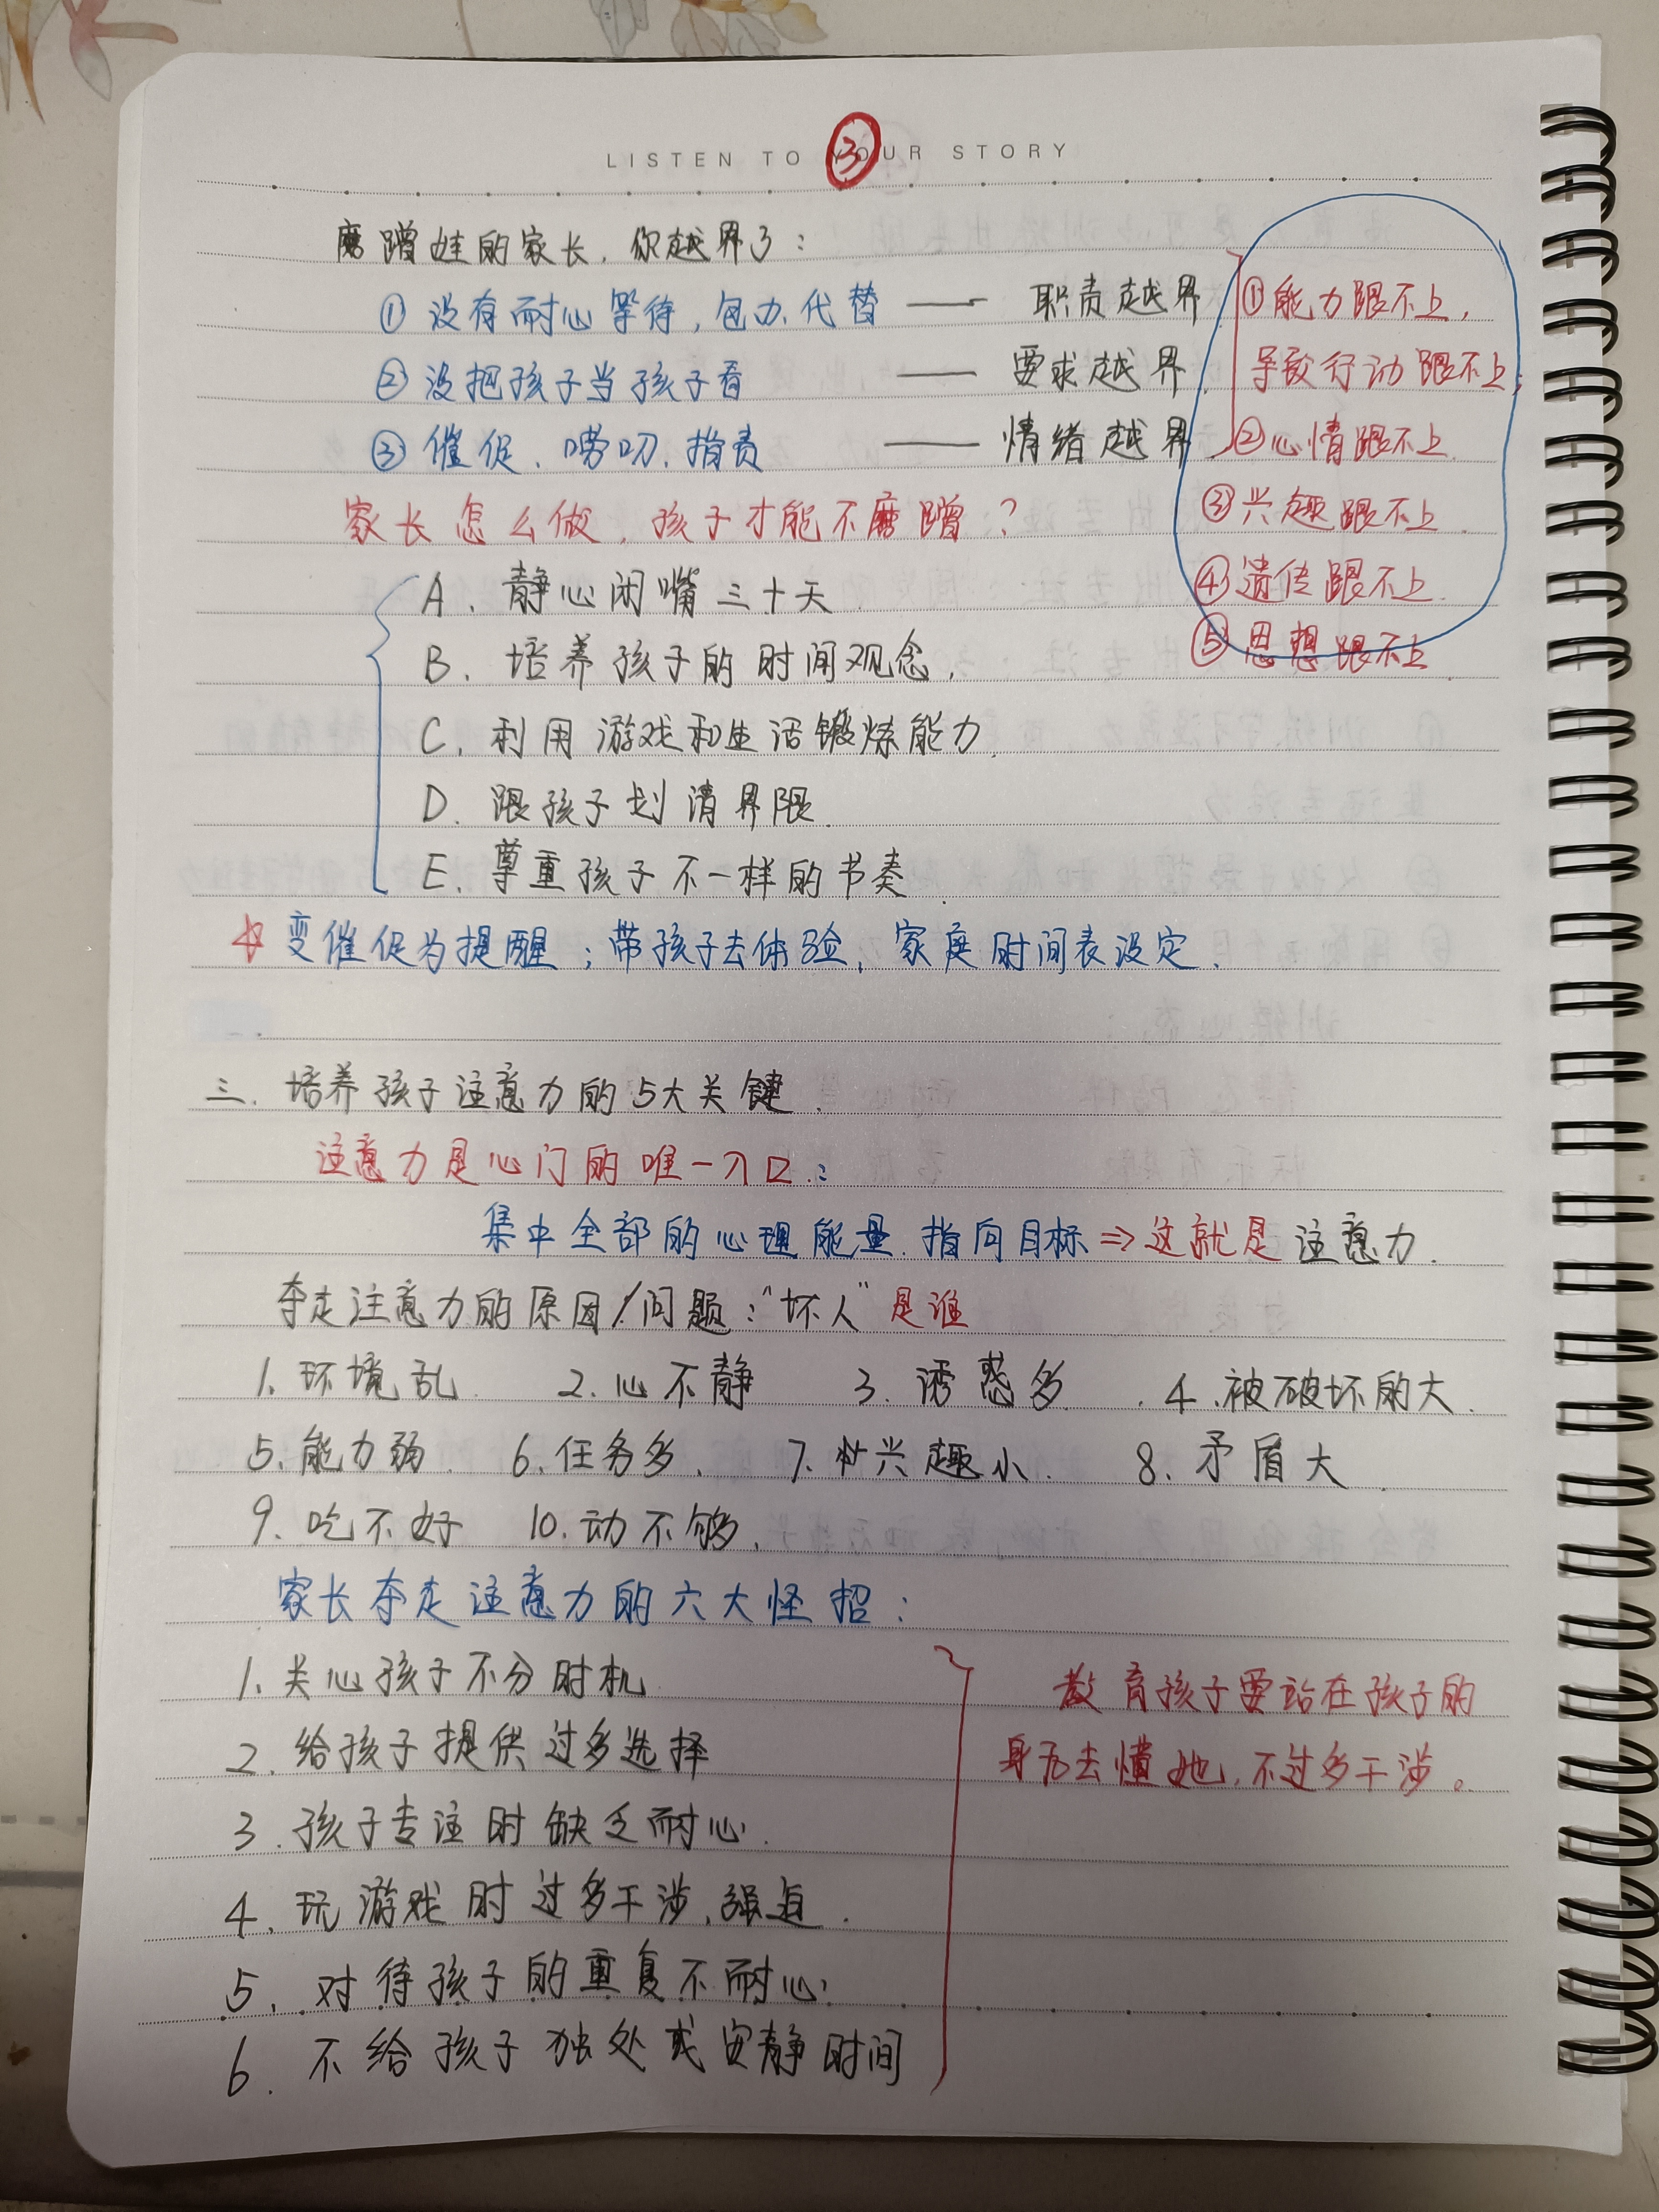 LISTEN TO YOUR STORY
③
磨蹭娃的家长,你越界了:
①没有耐心等待,包办、代替 —— 职责越界
②没把孩子当孩子看 —— 要求越界
③催促、唠叨、指责 —— 情绪越界
①能力跟不上,
导致行动跟不上;
②心情跟不上.
③兴趣跟不上.
④遗传跟不上.
⑤思想跟不上
家长怎么做,孩子才能不磨蹭?
A、静心闭嘴三十天
B、培养孩子的时间观念,
C、利用游戏和生活锻炼能力,
D、跟孩子划清界限.
E、尊重孩子不一样的节奏.
☆变催促为提醒;带孩子去体验、家庭时间表设定.
三、培养孩子注意力的5大关键.
注意力是心门的唯一入口:
集中全部的心理能量.指向目标⇒这就是注意力.
夺走注意力的原因/问题:“坏人”是谁
1.环境乱. 2.心不静 3.诱惑多 4.被破坏的大.
5.能力弱. 6.任务多. 7.兴趣小. 8.矛盾大
9.吃不好 10.动不够.
家长夺走注意力的六大怪招:
1.关心孩子不分时机
2.给孩子提供过多选择
3.孩子专注时缺乏耐心.
4.玩游戏时过多干涉,强迫.
5.对待孩子的重复不耐心
6.不给孩子独处或安静时间
教育孩子要站在孩子的
身后去懂她,不过多干涉。